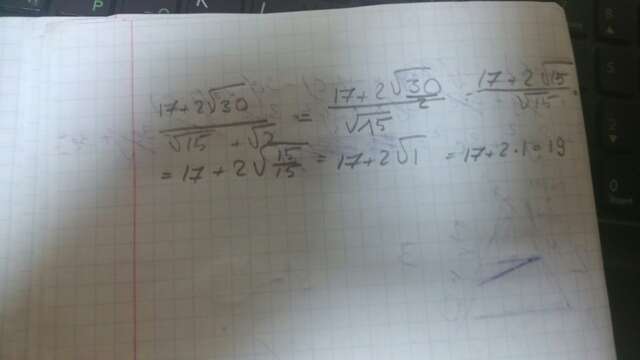 (17+2√30)/(√15 + √2) = (17+2√(30/2))/√15 = (17+2√15)/√15 =
= 17+2√(15/15) = 17+2√1 = 17+2·1=19